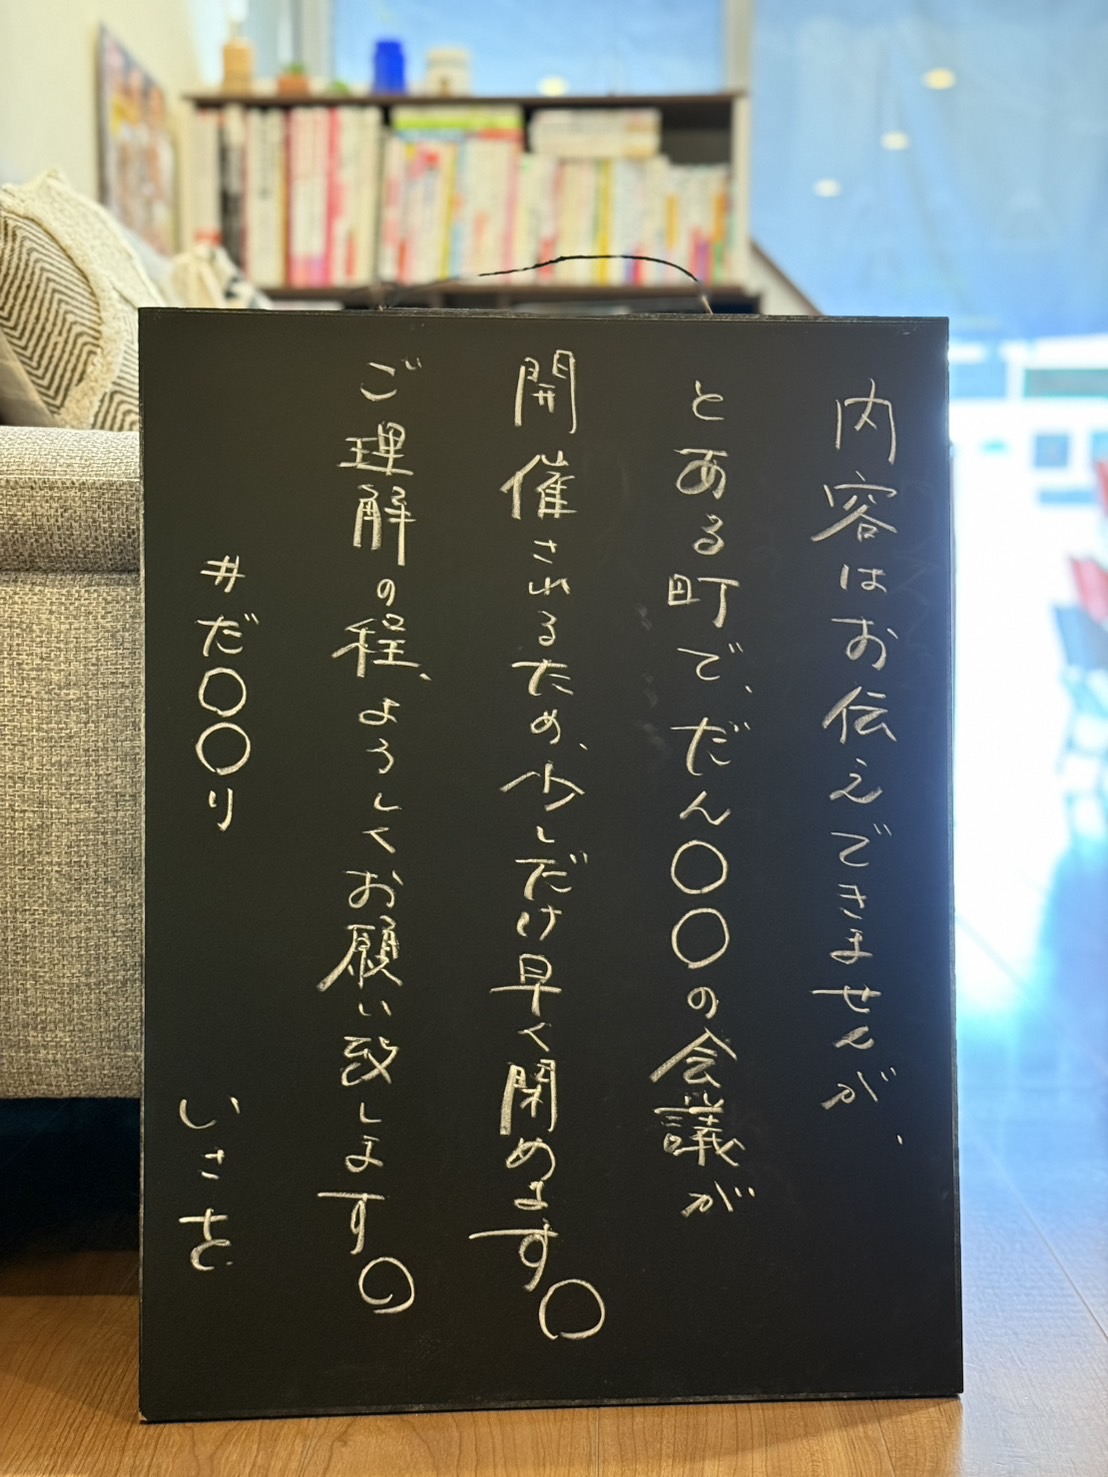 内容はお伝えできませんが、
とある町で、だん〇〇の会議が
開催されるため、少しだけ早く閉めます。
ご理解の程、よろしくお願い致します。
#だ〇〇り
いさを